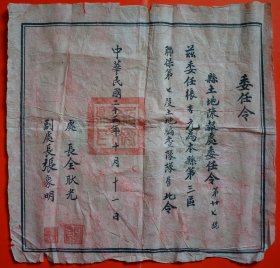 委任令
縣土地陳報處委任令第廿七號
茲委任張 為本縣第三區
聯保第七段土地編查隊隊員此令
處長全耿光
副處長張象明
中華民國二十 年十月十一日